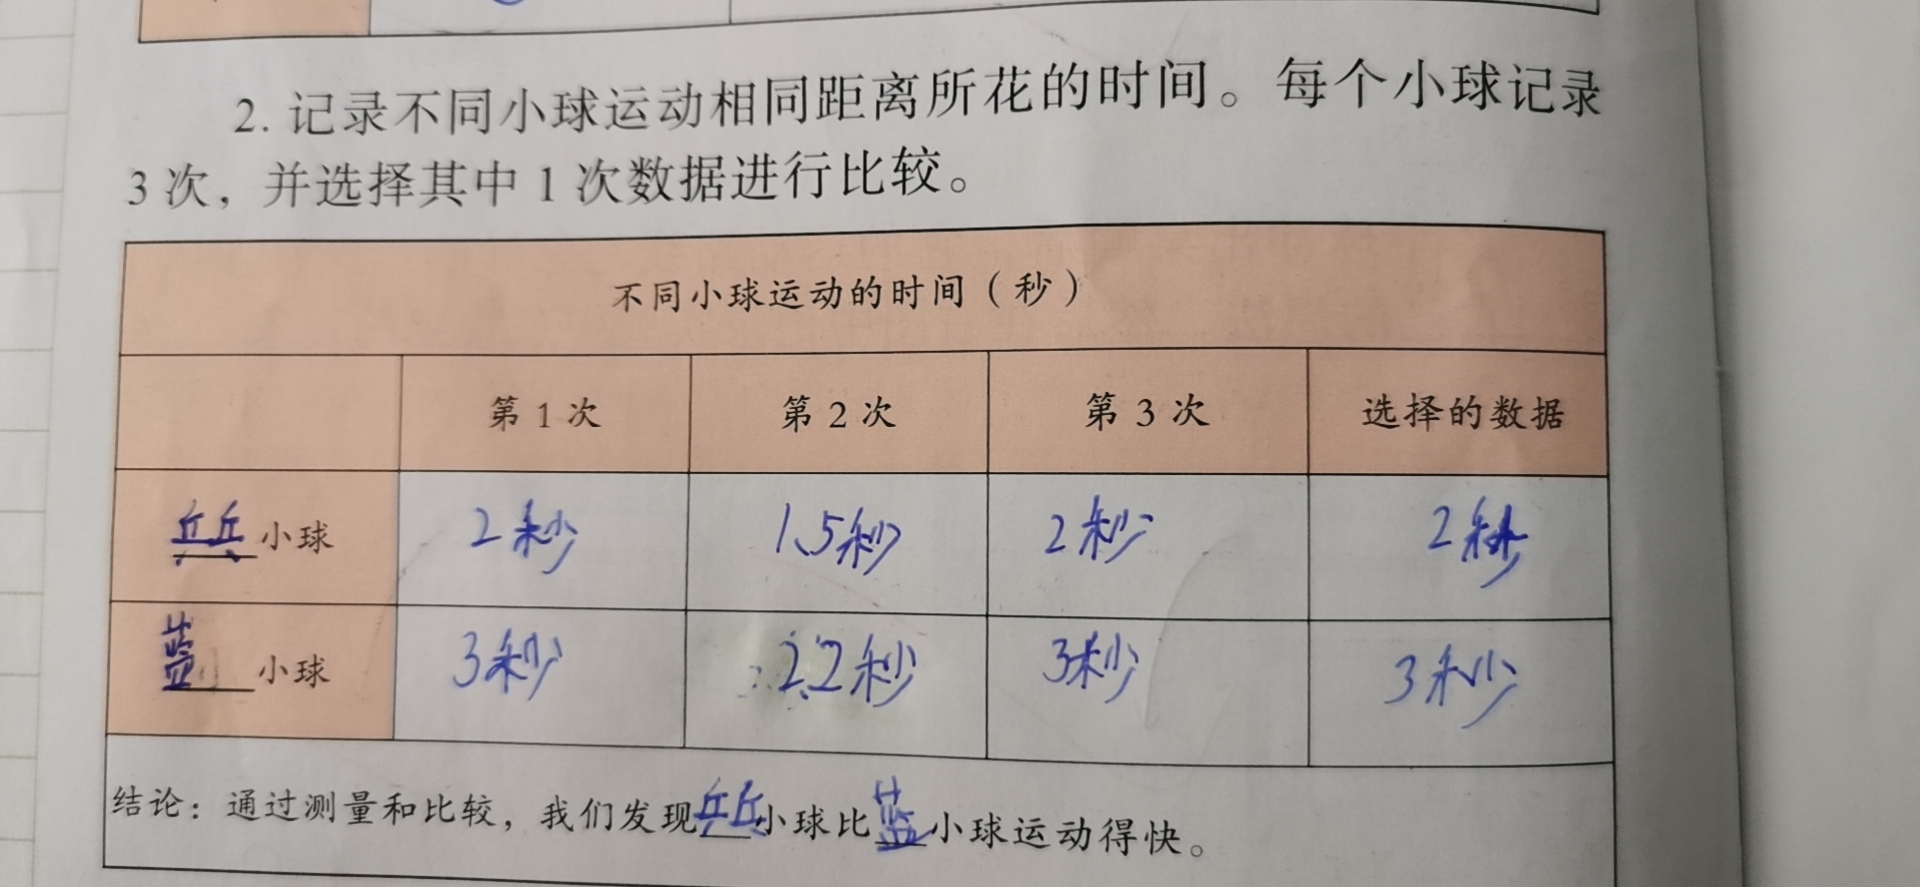 2. 记录不同小球运动相同距离所花的时间。每个小球记录
3次，并选择其中1次数据进行比较。
不同小球运动的时间（秒）
第1次 第2次 第3次 选择的数据
乒乓小球 2秒 1.5秒 2秒 2秒
蓝小球 3秒 2.2秒 3秒 3秒
结论：通过测量和比较，我们发现乒乓小球比蓝小球运动得快。